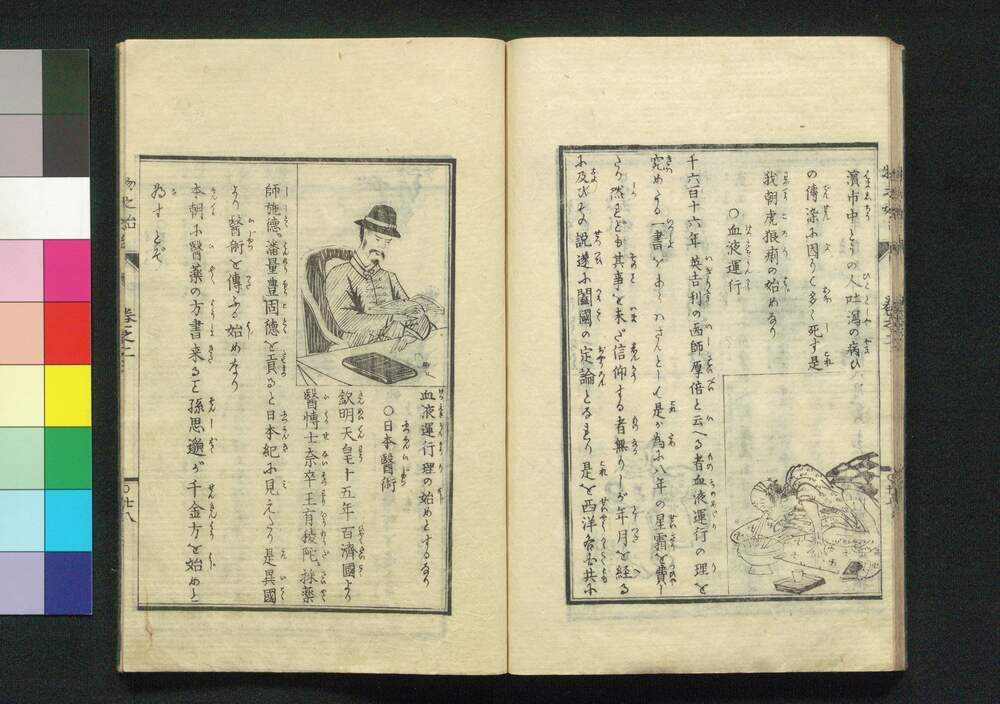 濱市中とりの人吐瀉の病ひ
の傳染に因りく多く死す是
我朝虎狼痢の始めなり
〇血液運行
千六百十六年英吉利の画師厚倍と云へる者血液運行の理を
究めたる一書をあらハさんとし是が為に八年の星霜を費し
たり然れども其事を未だ信仰する者無りしが年月を経る
に及びその説遂に闔國の定論となるより是を西洋各国共に
血液運行理の始めとするなり
〇日本醫術
欽明天皇十五年百濟國より
醫博士奈卒王有㥄陀、採薬
師施德、潘量豊固德、を貢ると日本紀に見えたり是異國
より醫術を傳ふる始めなり
本朝に醫薬の方書来ると孫思邈が千金方を始めと
為すとぞ
物之始
巻之二
〇廿八